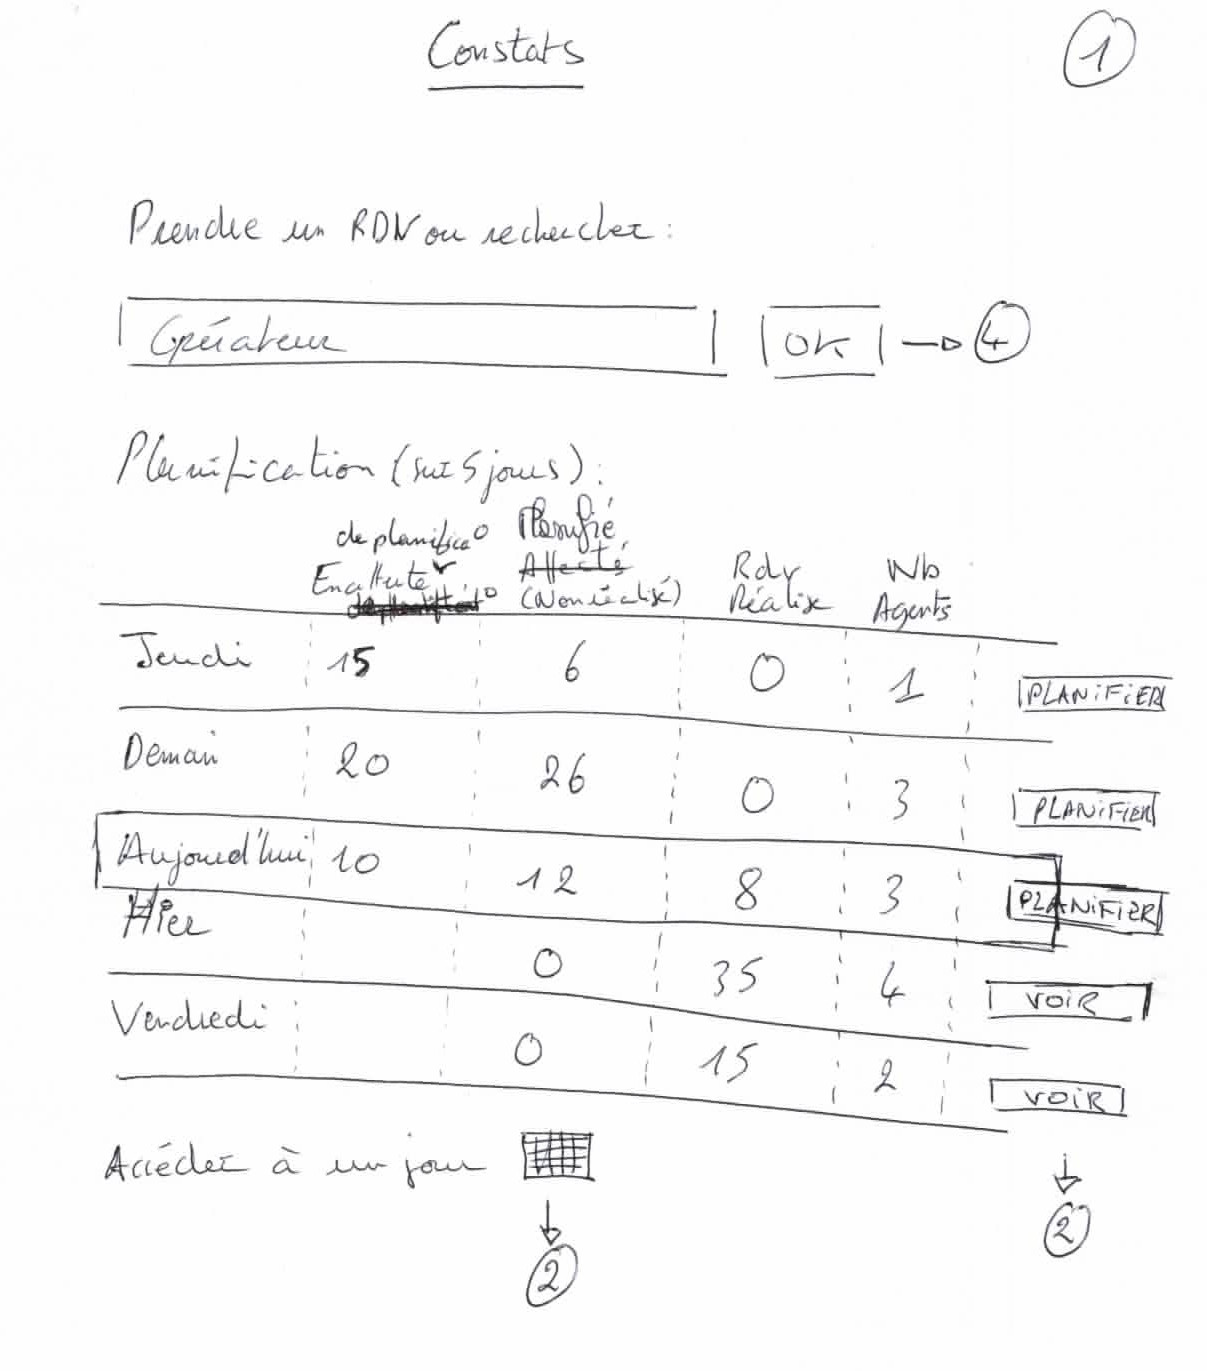 Constats
1
Prendre un RDV ou rechercher :
Opérateur OK → 4
Planification (sur 5 jours) :
de planifica° Planifié
En attente Affecté Rdv Nb
(Non réalisé) Réalisé Agents
Jeudi 15 6 0 1 PLANiFiER
Demain 20 26 0 3 PLANiFiER
Aujourd'hui 10 12 8 3 PLANiFiER
Hier 0 35 4 VOiR
Vendredi 0 15 2 VOiR
Accéder à un jour
2 2